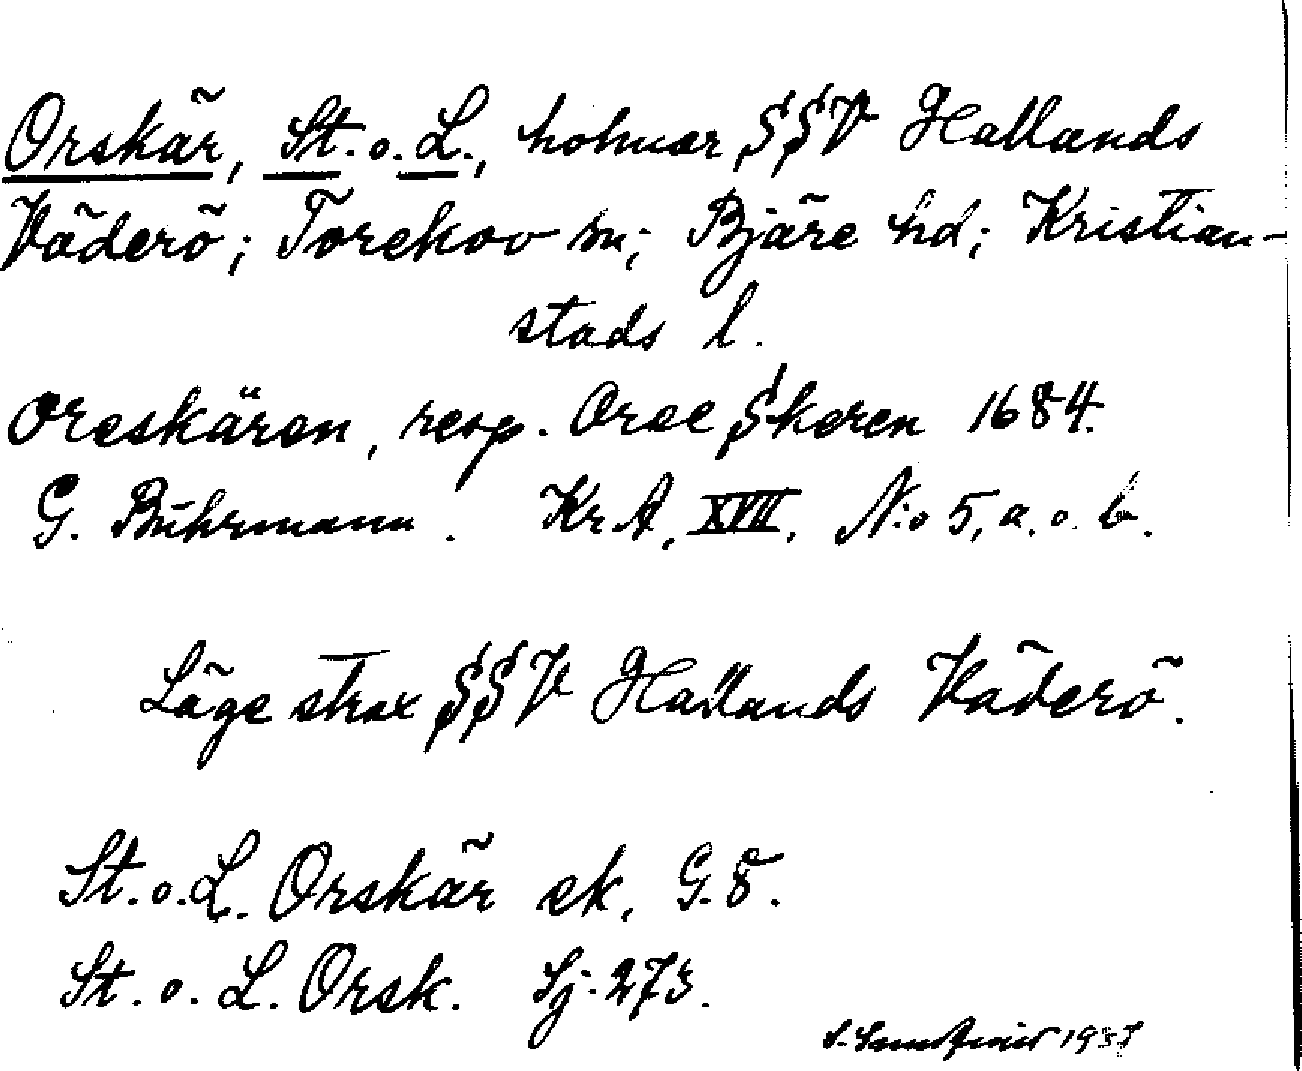 Orskär, St. o. L., holmar SSV Hallands
Väderö; Torekov sn; Bjäre hd; Kristian-
stads l.
Oreskären, resp. Oree Skeren 1684.
G. Buhrmann. Kr A, XVII, N:o 5, a. o. b.
Läge strax SSV Hallands Väderö.
St. o. L. Orskär ek. G. 8.
St. o. L. Orsk. Sj. 273.
1937